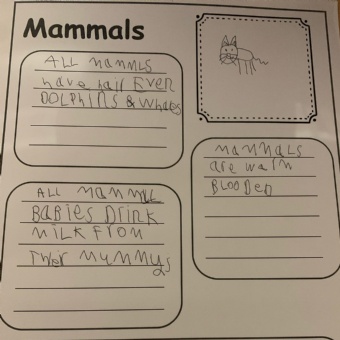 Mammals
ALL MAMMLS
have hair Even
DOLPHINS & Whales
MAMMALS
are warm
BLOODED
ALL MAMMLE
BABIES DRINK
MILK FROM
Their MUMMYS